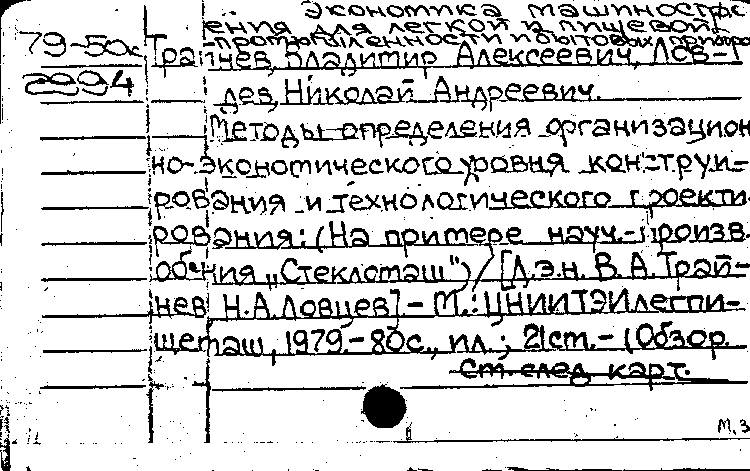 Экономика машиностро
ения для легкой и пищевой
промышленности и бытовых приборо
79-50к Трайнев, Владимир Алексеевич, Лов-
2994
цев, Николай Андреевич.
Методы определения организацион
но-экономического уровня констру-
рования и технологического проекти
рования: (На примере науч.-произв.
об-ния „Стекломаш") / [Д.э.н. В.А. Трай-
нев, Н.А. Ловцев] - М.: ЦНИИТЭИлегпи-
щемаш, 1979. - 80с., ил.; 21см. - (Обзор
См. след. карт.
М.З